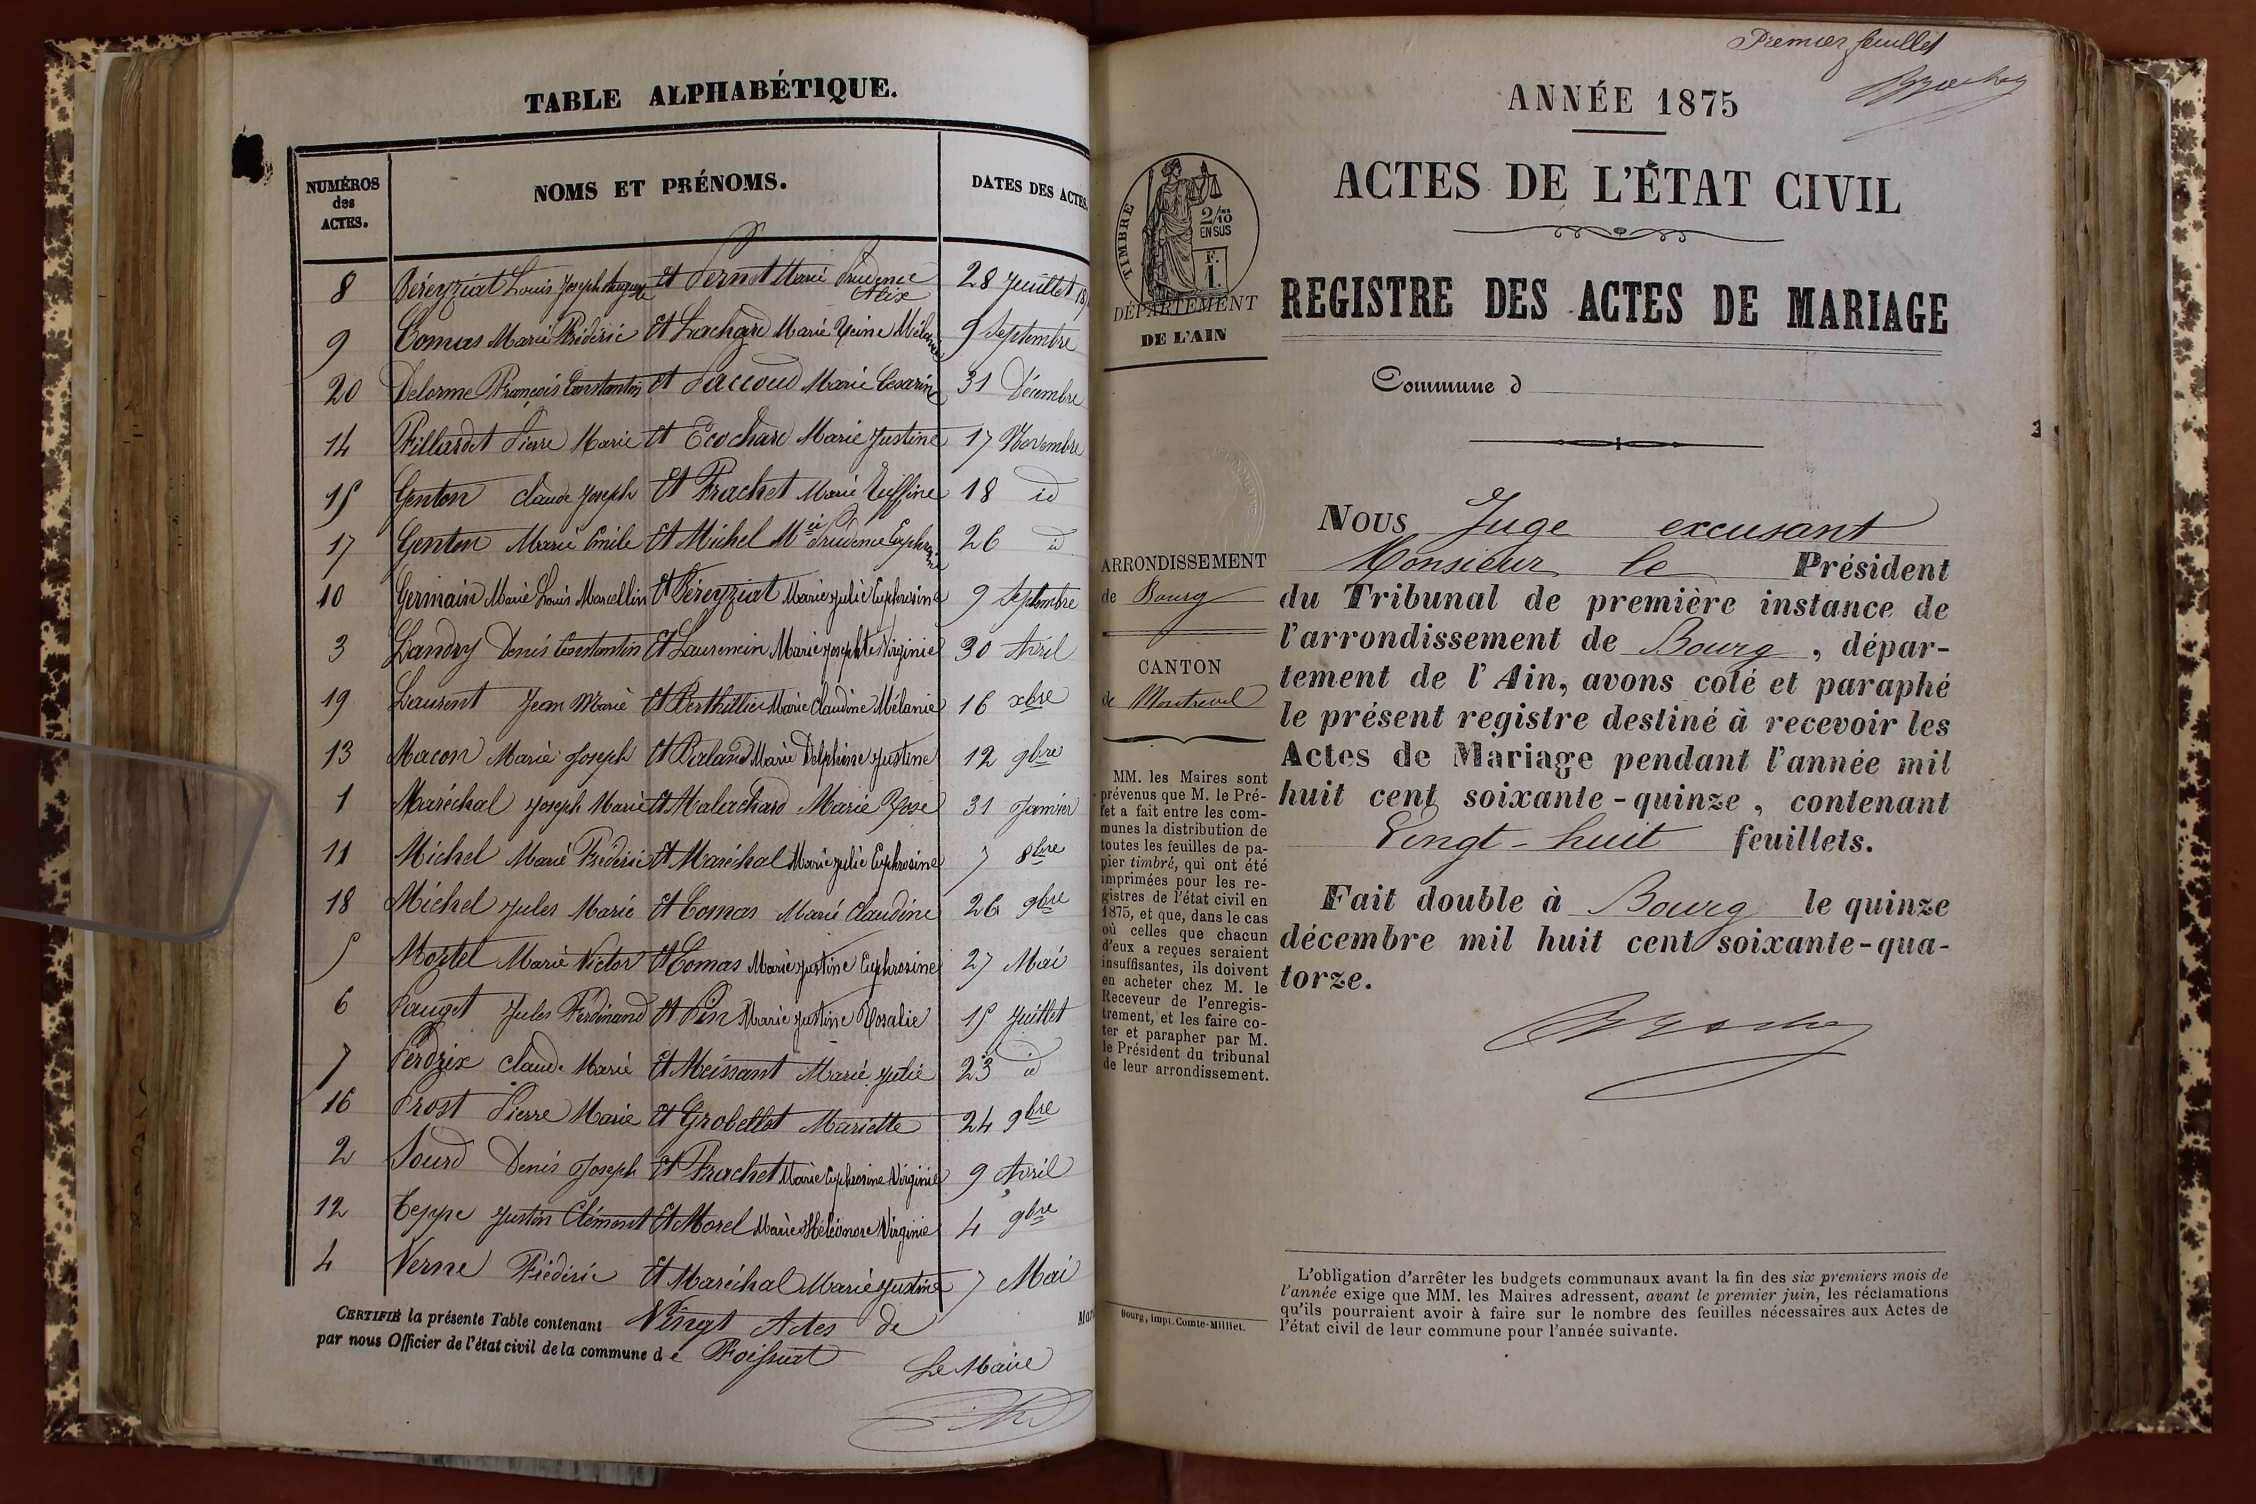 TABLE ALPHABÉTIQUE.
NUMÉROS des ACTES.
NOMS ET PRÉNOMS.
DATES DES ACTES.
8 Béreyziat Louis Joseph Auguste et Pernot Marie Prudence Alix 28 Juillet 18
9 Comas Marie Frédéric et Lachard Marie Reine Mélanie 9 Septembre
20 Delorme François Constantin et Paccoud Marie Cesarine 31 Décembre
14 Fillardet Pierre Marie et Ecochard Marie Justine 17 Novembre
15 Genton Claude Joseph et Frachet Marie Ruffine 18 id
17 Genton Marie Emile et Michel Mie Prudence Euphrosine 26 id
10 Germain Marie Louis Marcellin et Béreyziat Marie Julie Euphrosine 9 Septembre
3 Landry Denis Constantin et Laurencin Marie Josephte Virginie 30 Avril
19 Laurent Jean Marie et Berthillier Marie Claudine Mélanie 16 xbre
13 Macon Marie Joseph et Baland Marie Delphine Justine 12 9bre
1 Maréchal Joseph Marie et Malachard Marie Rose 31 Janvier
11 Michel Marie Frédéric et Maréchal Marie Julie Euphrosine 7 8bre
18 Michel Jules Marie et Comas Marie Claudine 26 9bre
5 Moztel Marie Victor et Comas Marie Justine Euphrosine 27 Mai
6 Pauget Jules Ferdinand et Pin Marie Justine Rosalie 15 Juillet
7 Perdrix Claude Marie et Moissant Marie Julie 23 id
16 Prost Pierre Marie et Grobellet Mariette 24 9bre
2 Sourd Denis Joseph et Frachet Marie Euphrosine Virginie 9 Avril
12 Teppe Justin Clément et Morel Marie Héléonore Virginie 4 9bre
4 Verne Frédéric et Maréchal Marie Justine 7 Mai
CERTIFIÉ la présente Table contenant Vingt Actes de Mar
par nous Officier de l'état civil de la commune de Foissiat
Le Maire
Premier feuillet
ANNÉE 1875
ACTES DE L'ÉTAT CIVIL
REGISTRE DES ACTES DE MARIAGE
Commune d
TIMBRE
2/10 EN SUS
F. 1.
DÉPARTEMENT
DE L'AIN
ARRONDISSEMENT
de Bourg
CANTON
de Montrevel
MM. les Maires sont
prévenus que M. le Pré-
fet a fait entre les com-
munes la distribution de
toutes les feuilles de pa-
pier timbré, qui ont été
imprimées pour les re-
gistres de l'état civil en
1875, et que, dans le cas
où celles que chacun
d'eux a reçues seraient
insuffisantes, ils doivent
en acheter chez M. le
Receveur de l'enregis-
trement, et les faire co-
ter et parapher par M.
le Président du tribunal
de leur arrondissement.
Bourg, impr. Comte-Milliet.
NOUS Juge excusant
Monsieur le Président
du Tribunal de première instance de
l'arrondissement de Bourg, dépar-
tement de l'Ain, avons coté et paraphé
le présent registre destiné à recevoir les
Actes de Mariage pendant l'année mil
huit cent soixante-quinze, contenant
Vingt-huit feuillets.
Fait double à Bourg le quinze
décembre mil huit cent soixante-qua-
torze.
L'obligation d'arrêter les budgets communaux avant la fin des six premiers mois de
l'année exige que MM. les Maires adressent, avant le premier juin, les réclamations
qu'ils pourraient avoir à faire sur le nombre des feuilles nécessaires aux Actes de
l'état civil de leur commune pour l'année suivante.